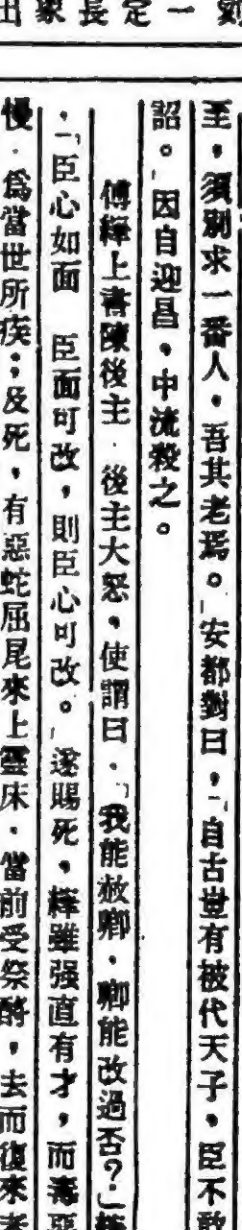 一
定
長
至，須別求一番人，吾其老焉。」安都對曰，「自古豈有被代天子，臣不敢
詔。」因自迎昌，中流殺之。
傅縡上書陳後主．後主大怒，使謂曰．「我能赦卿，卿能改過否？」縡
．「臣心如面　臣面可改，則臣心可改。」遂賜死，縡雖强直有才，而毒惡
慢．爲當世所疾；及死，有惡蛇屈尾來上靈床．當前受祭酹，去而復來者